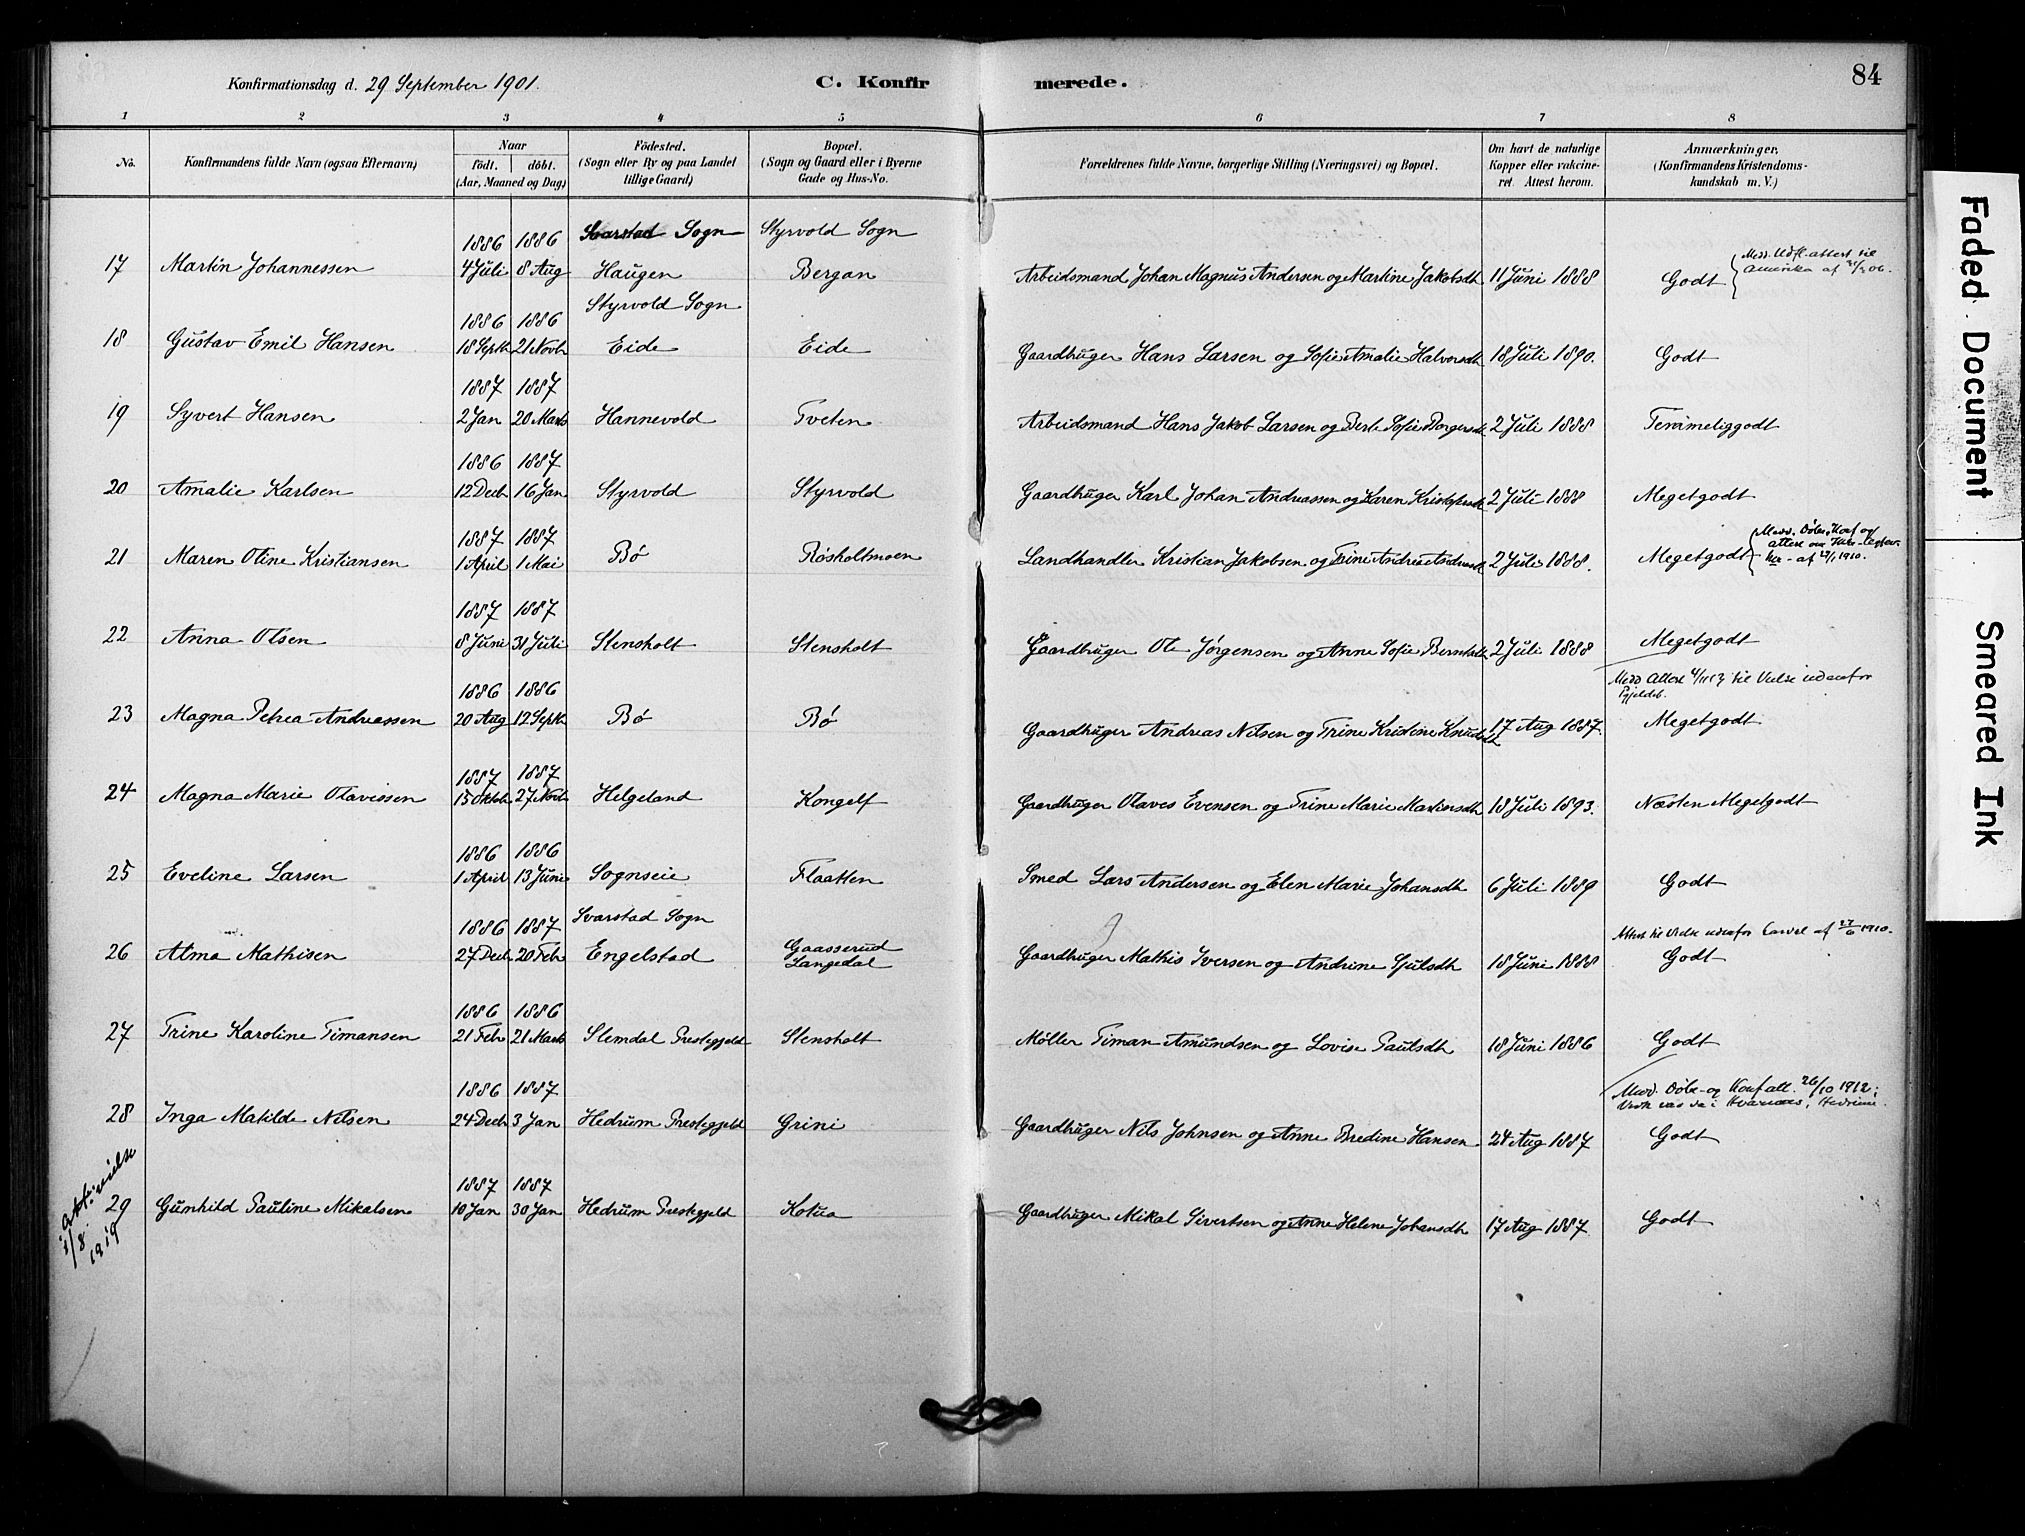 Konfirmationsdag d. 29 September 1901.
C. Konfir merede.
84
1 2 3 4 5 6 7 8
No. Konfirmandens fulde Navn (ogsaa Efternavn) Naar født. døbt. (Aar, Maaned og Dag) Fødested. (Sogn eller By og paa Landet tillige Gaard) Bopæl. (Sogn og Gaard eller i Byerne Gade og Hus-No. Forældrenes fulde Navne, borgerlige Stilling (Næringsvei) og Bopæl. Om havt de naturlige Kopper eller vakcineret. Attest herom. Anmærkninger. (Konfirmandens Kristendomskundskab m. V.)
1886 1886 Svarstad Sogn Styrvold Sogn
17 Martin Johannessen 4 Juli 8 Aug Haugen Bergan Arbeidsmand Johan Magnus Andersen og Martine Jakobsdtr 11 Juni 1888 Godt
Medd. Udfl. attest til
Amerika af
1886 1886 Styrvold Sogn
18 Gustav Emil Hansen 18 Septb 21 Novb Eide Eide Gaardbruger Hans Larsen og Sofie Amalie Halvorsdtr 18 Juli 1890. Godt
1887 1887
19 Syvert Hansen 2 Jan 20 Marts Hannevold Tveten Arbeidsmand Hans Jakob Larsen og Sofie 2 Juli 1888 Temmeliggodt
1886 1887
20 Amalie Karlsen 12 Decb 16 Jan Styrvold Styrvold Gaardbruger Karl Johan Andreassen og Karen 2 Juli 1888 Megetgodt
1887 1887
21 Maren Otine Kristiansen 1 April 1 Mai Bø Røsholtmoen Landhandler Kristian Jakobsen og Trine Andrea 2 Juli 1888. Megetgodt
Medd. Døbe, Konf og
attest om
af 1910.
1887 1887
22 Anna Olsen 8 Juni 31 Juli Stensholt Stensholt Gaardbruger Ole Jørgensen og Anne Sofie 2 Juli 1888 Megetgodt
Medd Attest til Vielse udenfor
Pgjeldet.
1886 1886
23 Magna Petrea Andreassen 20 Aug 12 Septb Bø Bø Gaardbruger Andreas Nilsen og Trine Kristine 17 Aug 1887. Megetgodt
1887 1887
24 Magna Marie Olavessen 15 Oktob 27 Novb Helgeland Kongelf Gaardbruger Olaves Evensen og Trine Marie Martinsdtr 18 Juli 1893. Næsten Megetgodt
1886 1886
25 Eveline Larsen 1 April 13 Juni Sognseie Flaatten Smed Lars Andersen og Elen Marie Johansdtr 6 Juli 1889 Godt
1886 1887 Svarstad Sogn
Attest til Vielse udenfor Larvik af 1910.
26 Alma Mathisen 27 Decb 20 Feb Engelstad Gaasserud Langedal Gaardbruger Mathis Iversen og Andrine Gjulsdtr 18 Juni 1888 Godt
1886 1886
27 Trine Karoline Timansen 21 Feb 21 Marts Slemdal Prestegjeld Stensholt Møller Timan Amundsen og Lovise Paulsdtr 18 Juni 1886 Godt
1886 1887
Medd. Døbe- og Konf att. 26/10 1912;
28 Inga Matilde Nilsen 24 Decb 3 Jan Hedrum Prestegjeld Grini Gaardbruger Nils Johnsen og Anne Bredine Hansen 24 Aug 1887 Godt
1887 1887
29 Gunhild Pauline Mikalsen 10 Jan 30 Jan Hedrum Prestegjeld Kotua Gaardbruger Mikal Sivertsen og Anne Helene Johansdtr 17 Aug 1887 Godt
att. vielse
1/8 1919
Faded Document
Smeared Ink